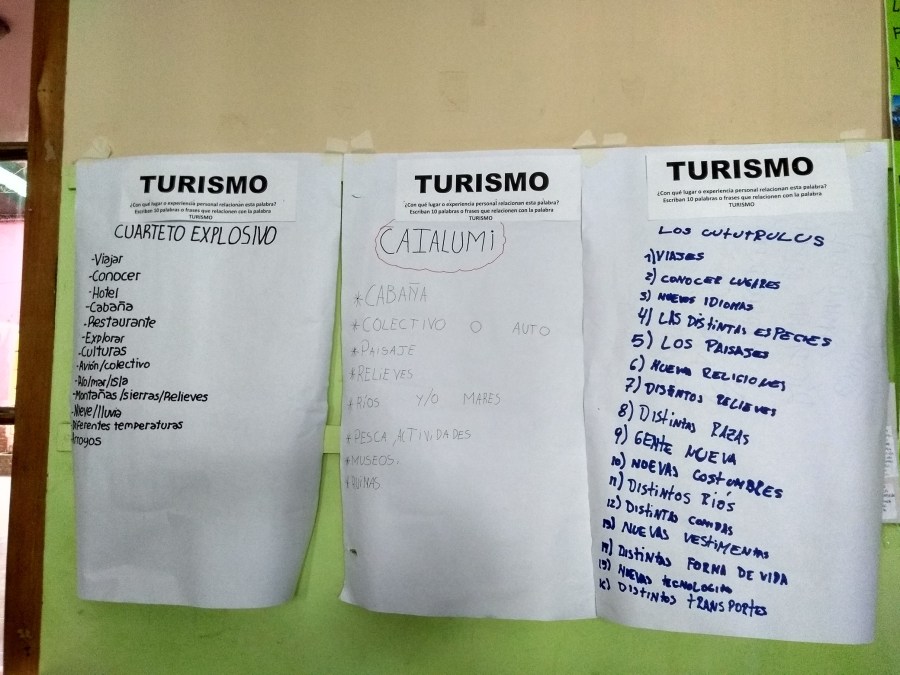 TURISMO
¿Con qué lugar o experiencia personal relacionan esta palabra?
Escriban 10 palabras o frases que relacionen con la palabra
TURISMO
CUARTETO EXPLOSIVO
-Viajar
-Conocer
-Hotel
-Cabaña
-Restaurante
-Explorar
-Culturas
-Avión/colectivo
-Río/mar/isla
-Montañas/sierras/Relieves
-Nieve/lluvia
Diferentes temperaturas
Arroyos
TURISMO
¿Con qué lugar o experiencia personal relacionan esta palabra?
Escriban 10 palabras o frases que relacionen con la palabra
TURISMO
CAIALUMI
*CABAÑA
*COLECTIVO O AUTO
*PAISAJE
*RELIEVES
*RÍOS Y/O MARES
*PESCA, ACTIVIDADES
*MUSEOS.
*RUINAS
TURISMO
¿Con qué lugar o experiencia personal relacionan esta palabra?
Escriban 10 palabras o frases que relacionen con la palabra
TURISMO
LOS CUTUTRULCUS
1) VIAJES
2) CONOCER LUGARES
3) NUEVOS IDIOMAS
4) LAS DISTINTAS ESPECIES
5) LOS PAISAJES
6) NUEVA RELIGIONES
7) DISTINTOS RELIEVES
8) DISTINTAS RAZAS
9) GENTE NUEVA
10) NUEVAS COSTUMBRES
11) DISTINTOS RÍOS
12) DISTINTAS COMIDAS
13) NUEVAS VESTIMENTAS
14) DISTINTAS FORMA DE VIDA
15) NUEVAS TECNOLOGIAS
16) DISTINTOS TRANSPORTES